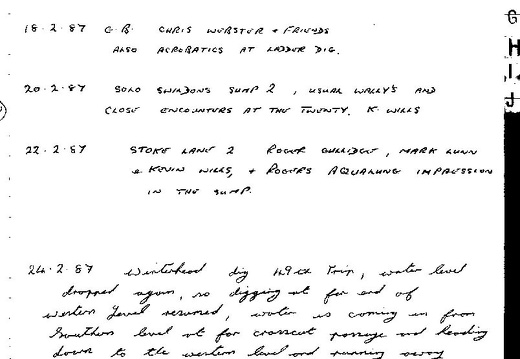 18·2·87 G.B. CHRIS WEBSTER + FRIENDS
ALSO ACROBATICS AT LADDER DIG.
20·2·87 SOLO SWILDONS SUMP 2, USUAL WALLY'S AND
CLOSE ENCOUNTERS AT THE TWENTY. K. WILLS
22·2·87 STOKE LANE 2 ROGER GULLIDGE, MARK LUNN
& KEVIN WILLS, + ROGERS AQUALUNG IMPRESSION
IN THE SUMP.
24·2·87 Winterhead dig 49th Trip, water level
dropped again, so digging at far end of
western level resumed, water is coming in from
Southern level at far crosscut passage and leading
down to the western level and running away